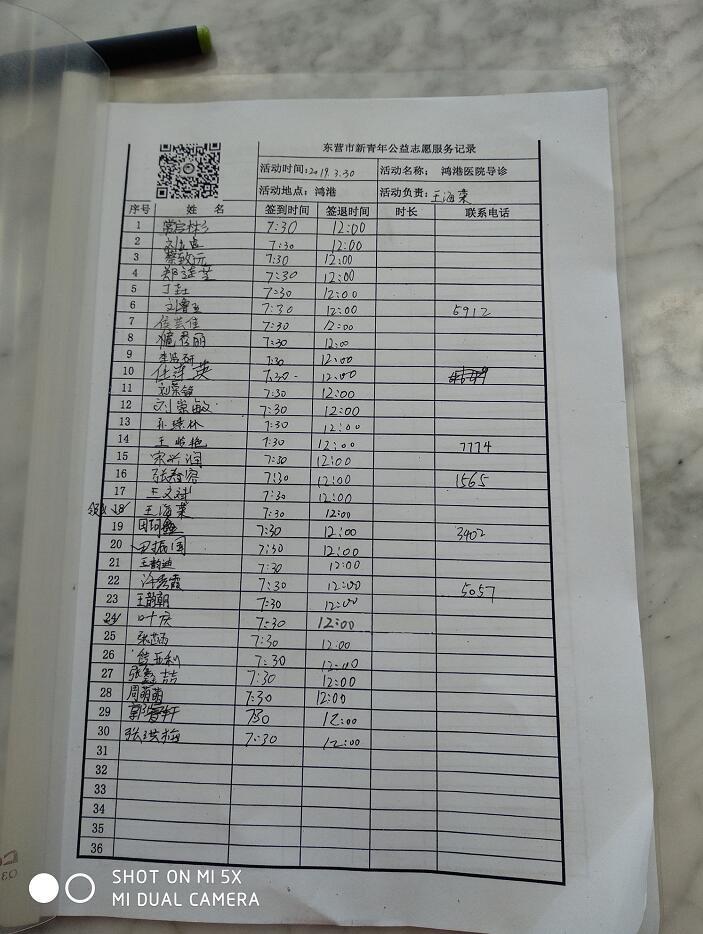 东营市新青年公益志愿服务记录
活动时间:2019.3.30 活动名称: 鸿港医院导诊
活动地点: 鸿港 活动负责: 王海荣
序号 姓 名 签到时间 签退时间 时长 联系电话
1 7:30 12:00
2 7:30 12:00
3 7:30 12:00
4 7:30 12:00
5 7:30 12:00
6 7:30 12:00 5912
7 7:30 12:00
8 7:30 12:00
9 7:30 12:00
10 7:30 12:00
11 7:30 12:00
12 刘崇敏 7:30 12:00
13 7:30 12:00
14 7:30 12:00 7774
15 7:30 12:00
16 张春容 7:30 12:00 1565
17 王文斌 7:30 12:00
18 王海荣 7:30 12:00
19 7:30 12:00 3402
20 田振国 7:30 12:00
21 王韵迪 7:30 12:00
22 许秀霞 7:30 12:00 5057
23 王韵朝 7:30 12:00
24 叶庆 7:30 12:00
25 7:30 12:00
26 7:30 12:00
27 7:30 12:00
28 周萌萌 7:30 12:00
29 7:30 12:00
30 张洪梅 7:30 12:00
31
32
33
34
35
36
SHOT ON MI 5X
MI DUAL CAMERA